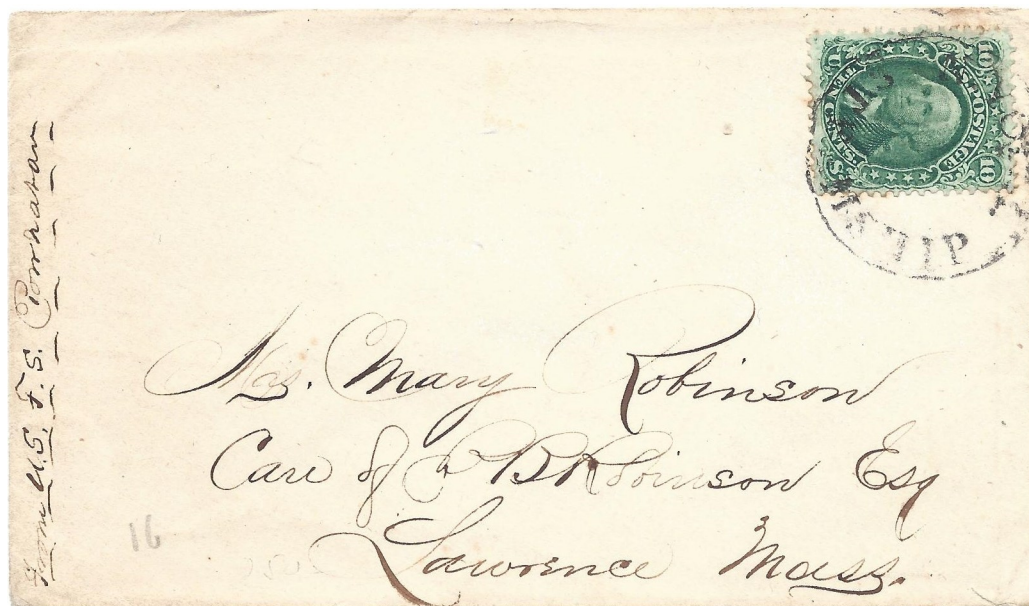 From U.S. F. S. Powhatan
U.S. POSTAGE
TEN CENTS
10 10
SHIP
Mrs. Mary Robinson
Care of B Robinson Esq
Lawrence Mass.
16